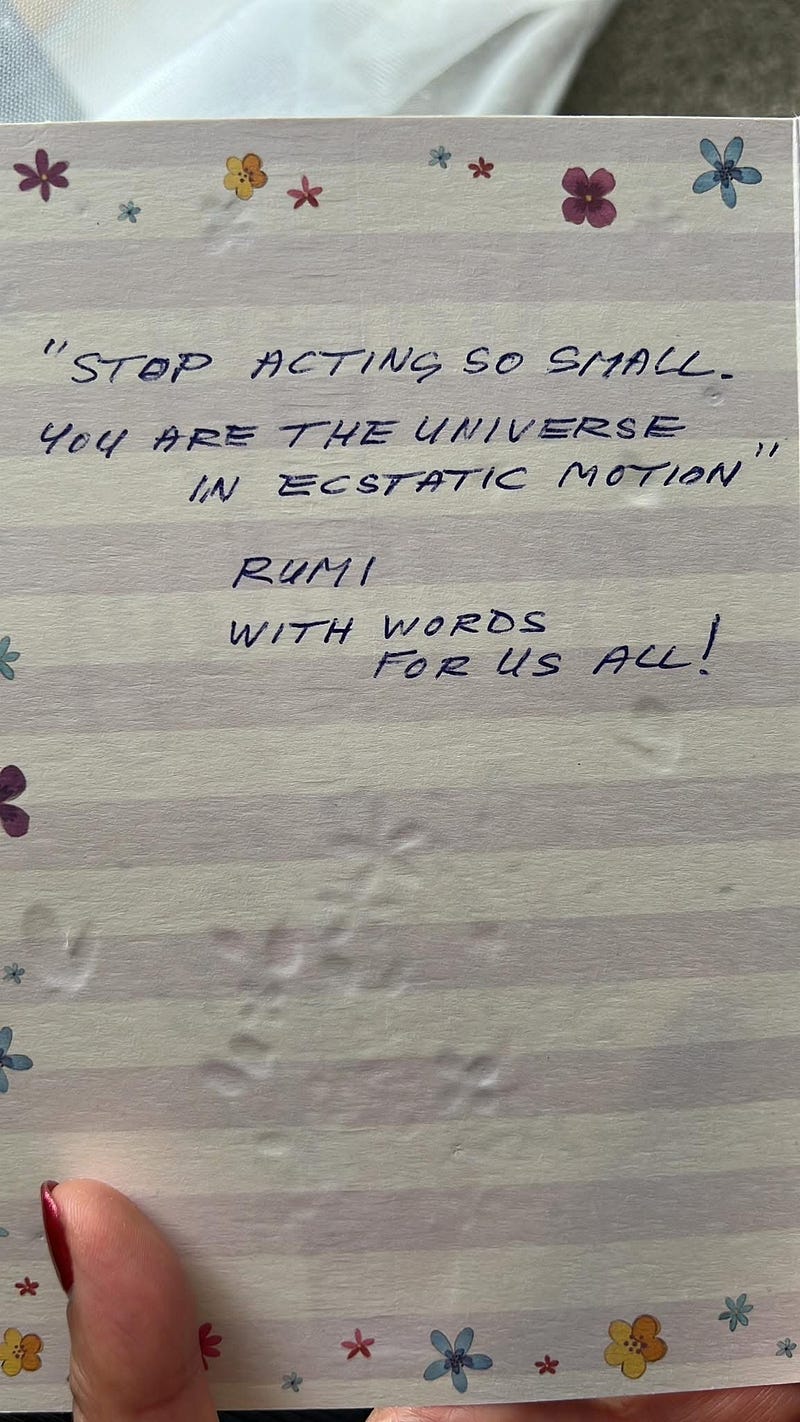 "STOP ACTING SO SMALL.
YOU ARE THE UNIVERSE
IN ECSTATIC MOTION"
RUMI
WITH WORDS
FOR US ALL!